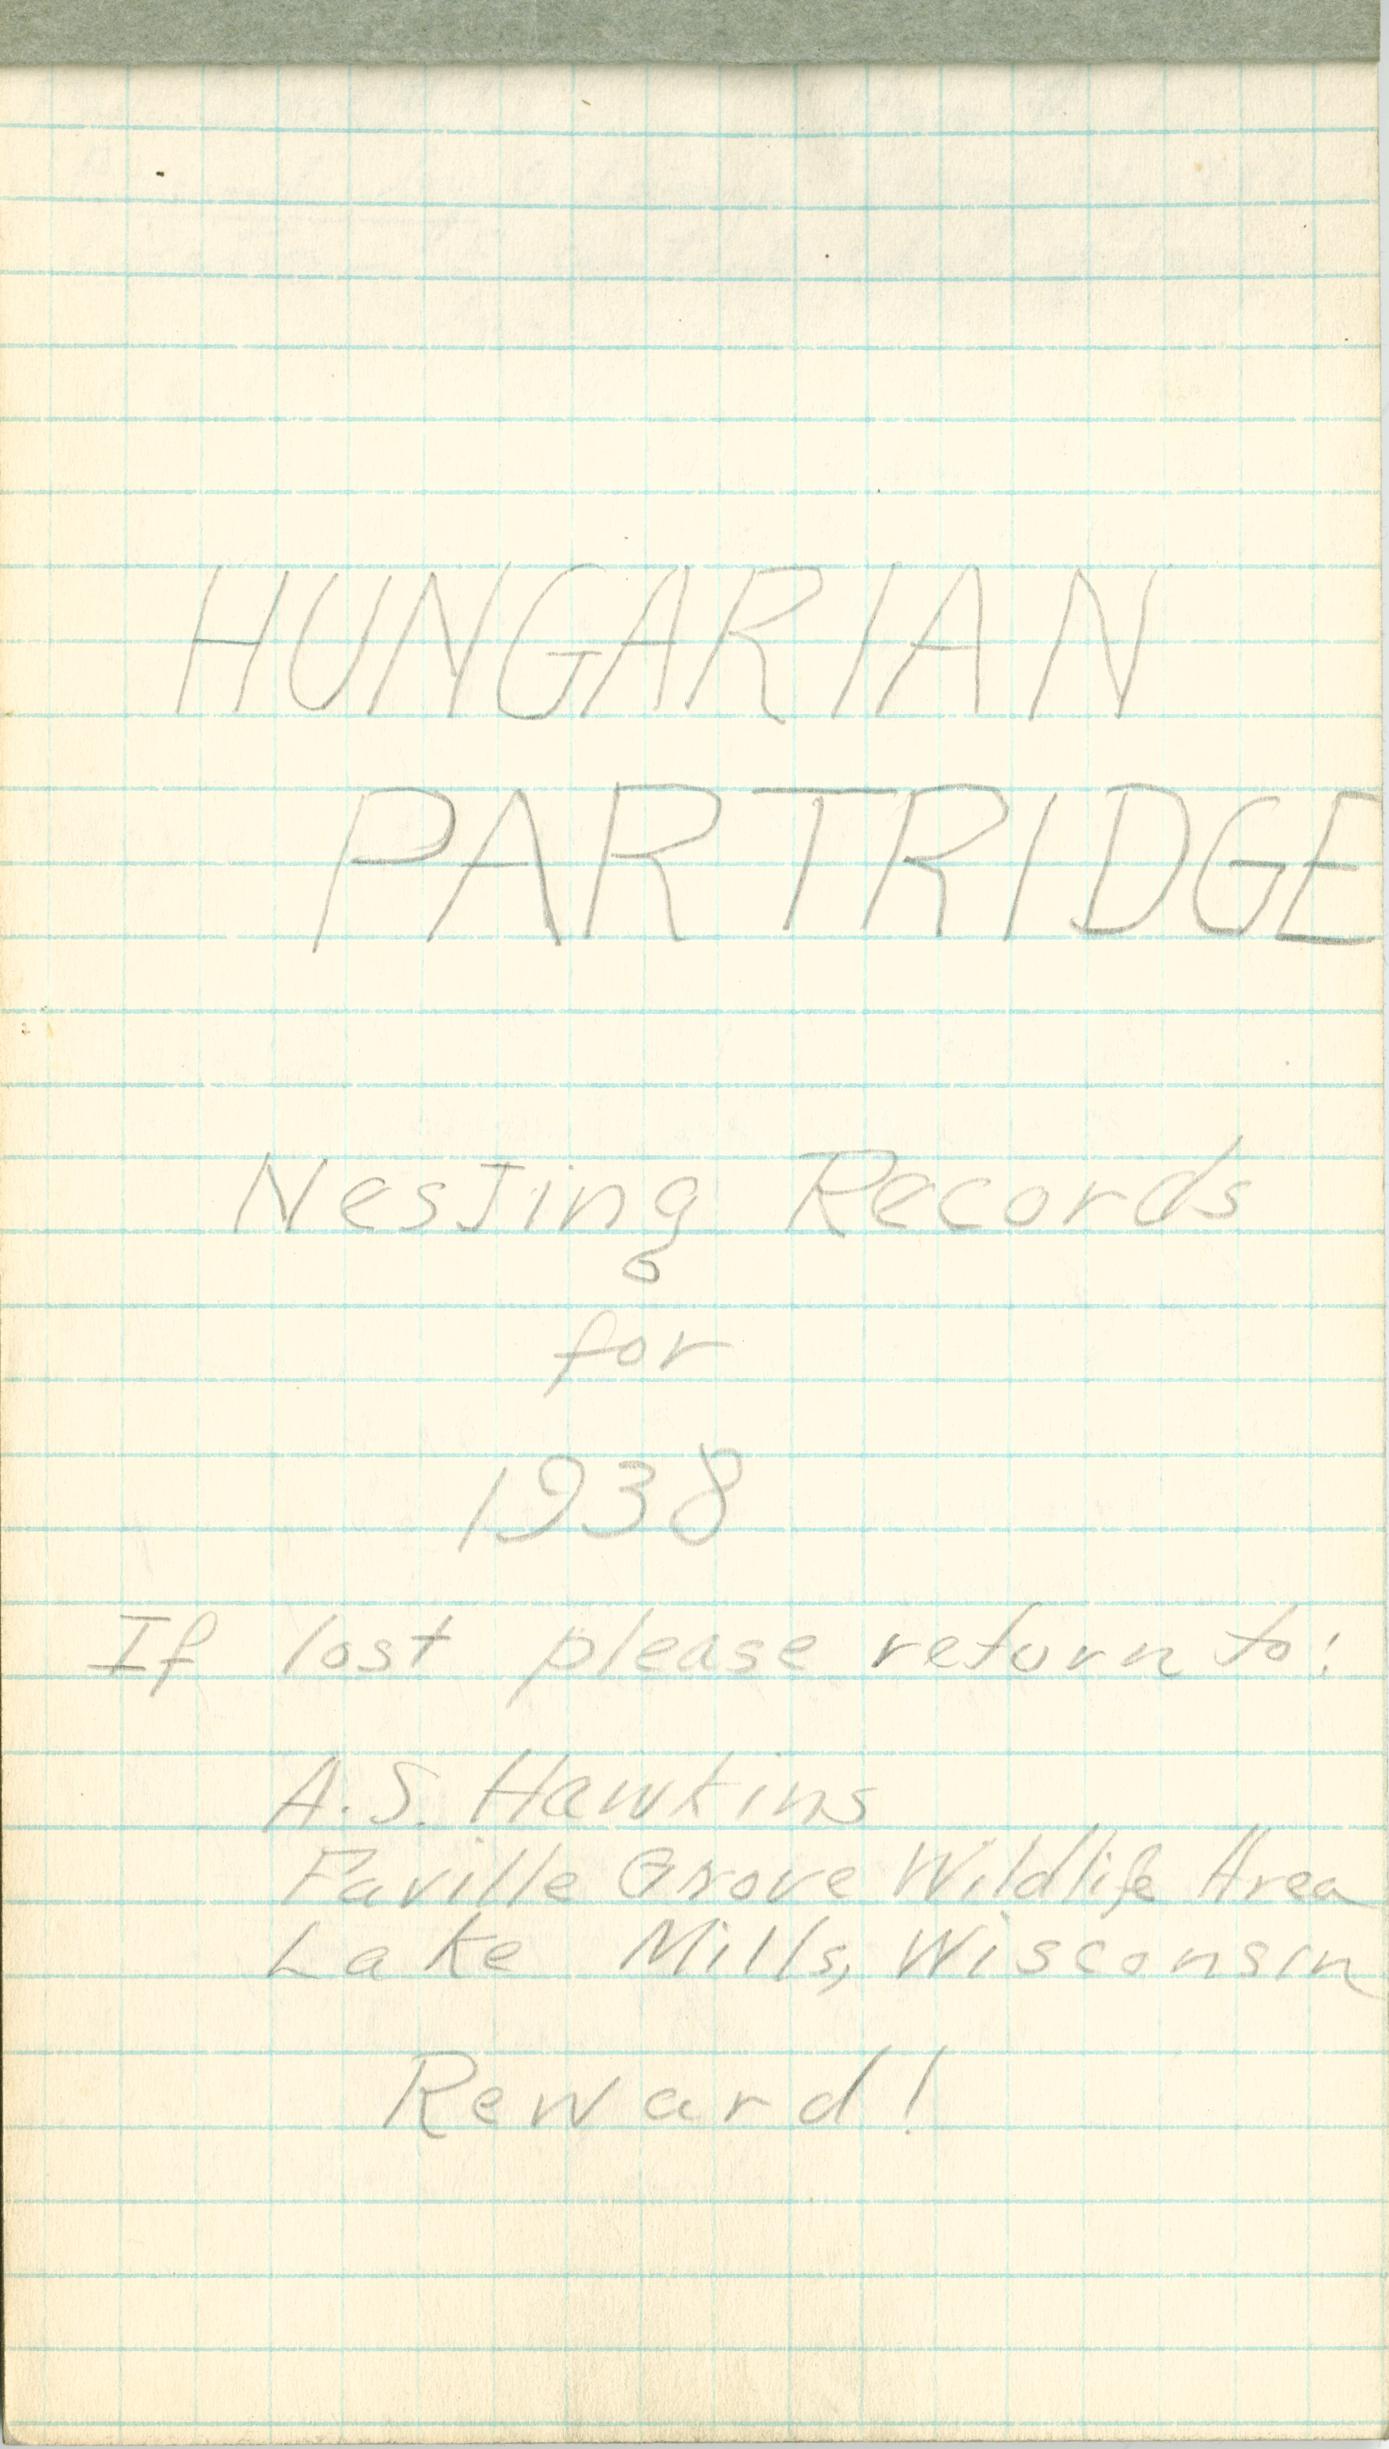 HUNGARIAN
PARTRIDGE
Nesting Records
for
1938
If lost please return to:
A.S. Hawkins
Faville Grove Wildlife Area
Lake Mills, Wisconsin
Reward!